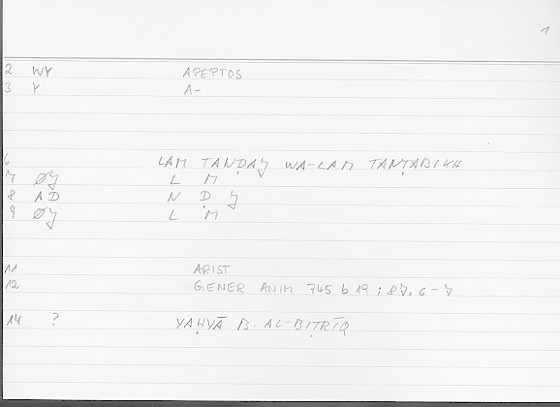 1
2 WY APEPTOS
3 Y A-
6 LAM TANḌAǦ WA-LAM TANṬABIKH
7 ØJ L M
8 AD N Ḍ J
9 ØJ L M
11 ARIST
12 GENER ANIM 745 b 19 ; 87, 6-7
14 ? YAḤYĀ B. AL-BIṬRĪQ